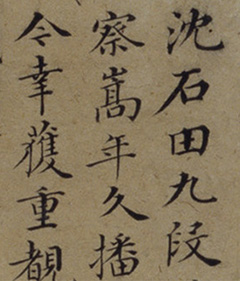 沈石田九段
察嵩年久播
今幸獲重覩